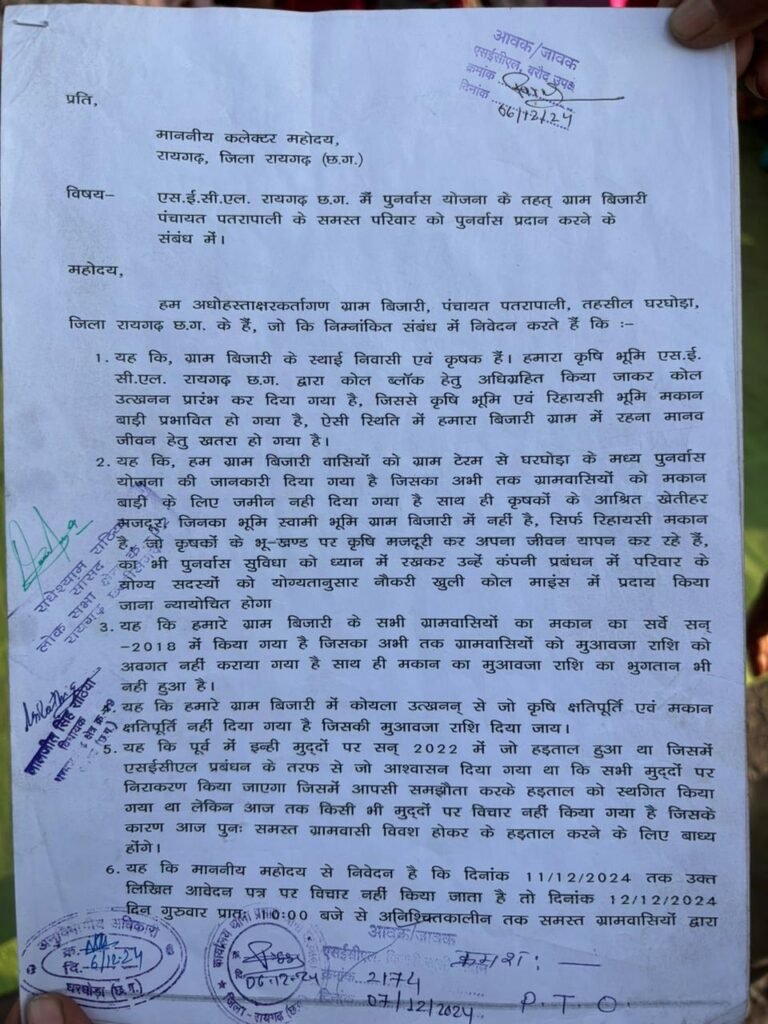 आवक/जावक
एसईसीएल, बरौद उपक्षे
क्रमांक
दिनांक 06/12/24
प्रति,
माननीय कलेक्टर महोदय,
रायगढ़, जिला रायगढ़ (छ.ग.)
विषय– एस.ई.सी.एल. रायगढ़ छ.ग. में पुनर्वास योजना के तहत् ग्राम बिजारी
पंचायत पतरापाली के समस्त परिवार को पुनर्वास प्रदान करने के
संबंध में।
महोदय,
हम अधोहस्ताक्षरकर्तागण ग्राम बिजारी, पंचायत पतरापाली, तहसील घरघोड़ा,
जिला रायगढ़ छ.ग. के हैं, जो कि निम्नांकित संबंध में निवेदन करते हैं कि :–
1. यह कि, ग्राम बिजारी के स्थाई निवासी एवं कृषक हैं। हमारा कृषि भूमि एस.ई.
सी.एल. रायगढ़ छ.ग. द्वारा कोल ब्लॉक हेतु अधिग्रहित किया जाकर कोल
उत्खनन प्रारंभ कर दिया गया है, जिससे कृषि भूमि एवं रिहायसी भूमि मकान
बाड़ी प्रभावित हो गया है, ऐसी स्थिति में हमारा बिजारी ग्राम में रहना मानव
जीवन हेतु खतरा हो गया है।
2. यह कि, हम ग्राम बिजारी वासियों को ग्राम टेरम से घरघोड़ा के मध्य पुनर्वास
योजना की जानकारी दिया गया है जिसका अभी तक ग्रामवासियों को मकान
बाड़ी के लिए जमीन नही दिया गया है साथ ही कृषकों के आश्रित खेतीहर
मजदूर, जिनका भूमि स्वामी भूमि ग्राम बिजारी में नहीं है, सिर्फ रिहायसी मकान
है, जो कृषकों के भू–खण्ड पर कृषि मजदूरी कर अपना जीवन यापन कर रहे हैं,
का भी पुनर्वास सुविधा को ध्यान में रखकर उन्हें कंपनी प्रबंधन में परिवार के
योग्य सदस्यों को योग्यतानुसार नौकरी खुली कोल माइंस में प्रदाय किया
जाना न्यायोचित होगा
3. यह कि हमारे ग्राम बिजारी के सभी ग्रामवासियों का मकान का सर्वे सन्
–2018 में किया गया है जिसका अभी तक ग्रामवासियों को मुआवजा राशि को
अवगत नहीं कराया गया है साथ ही मकान का मुआवजा राशि का भुगतान भी
नही हुआ है।
4. यह कि हमारे ग्राम बिजारी में कोयला उत्खनन् से जो कृषि क्षतिपूर्ति एवं मकान
क्षतिपूर्ति नहीं दिया गया है जिसकी मुआवजा राशि दिया जाय।
5. यह कि पूर्व में इन्ही मुद्दों पर सन् 2022 में जो हड़ताल हुआ था जिसमें
एसईसीएल प्रबंधन के तरफ से जो आश्वासन दिया गया था कि सभी मुद्दों पर
निराकरण किया जाएगा जिसमें आपसी समझौता करके हड़ताल को स्थगित किया
गया था लेकिन आज तक किसी भी मुद्दों पर विचार नहीं किया गया है जिसके
कारण आज पुनः समस्त ग्रामवासी विवश होकर के हड़ताल करने के लिए बाध्य
होंगे।
6. यह कि माननीय महोदय से निवेदन है कि दिनांक 11/12/2024 तक उक्त
लिखित आवेदन पत्र पर विचार नहीं किया जाता है तो दिनांक 12/12/2024
दिन गुरुवार प्रातः 10:00 बजे से अनिश्चितकालीन तक समस्त ग्रामवासियों द्वारा
राधेश्याम राठिया
सांसद
लोक सभा क्षेत्र
रायगढ़
लालजीत सिंह राठिया
विधायक
क्षेत्र क्र.
(छ.ग.)
अनुविभागीय अधिकारी
क्र.
दि. 6/12/24
घरघोड़ा (छ.ग.)
कार्यालय थाना
06.12.24
जिला - रायगढ़ (छ.ग.)
आवक/जावक
एसईसीएल,
क्रमांक 2174
दिनांक 07/12/2024
क्रमशः —
P.T.O.